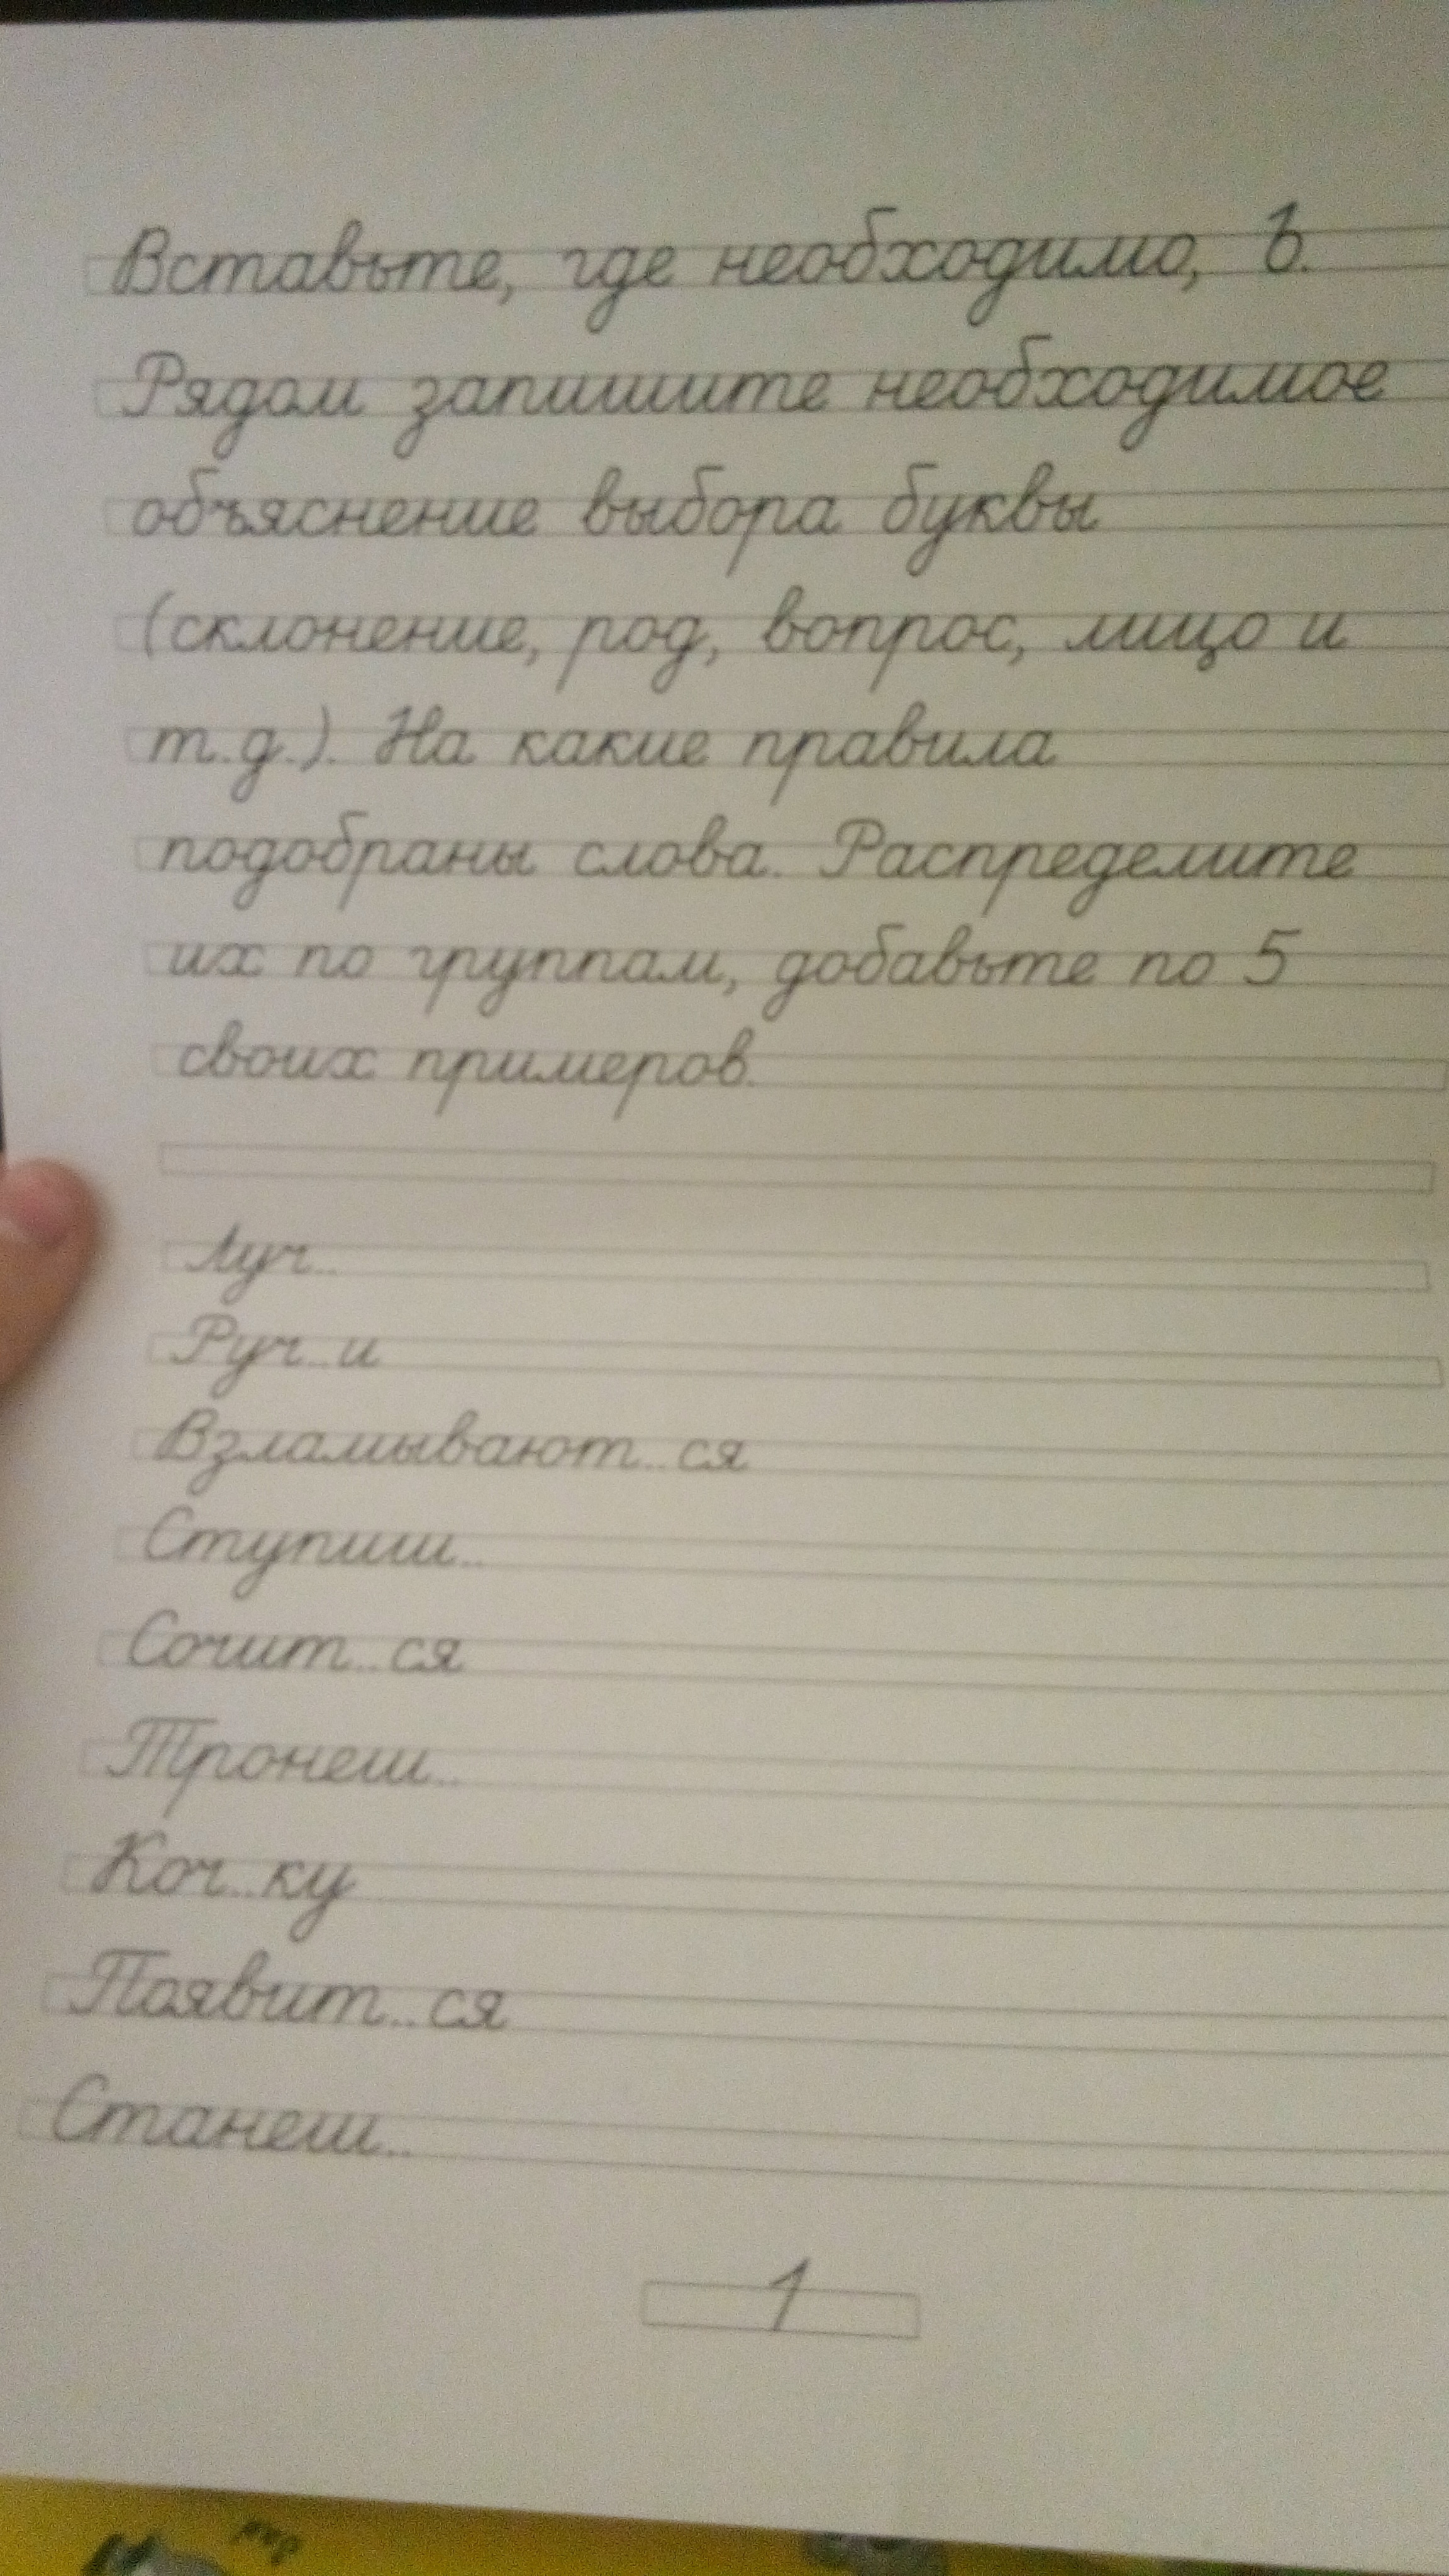 Вставьте, где необходимо, Ь.
Рядом запишите необходимое
объяснение выбора буквы
(склонение, род, вопрос, лицо и
т.д.). На какие правила
подобраны слова. Распределите
их по группам, добавьте по 5
своих примеров.
Луч..
Руч..и
Взламывают..ся
Ступиш..
Сочит..ся
Тронеш..
Коч..ку
Появит..ся
Станеш..
1